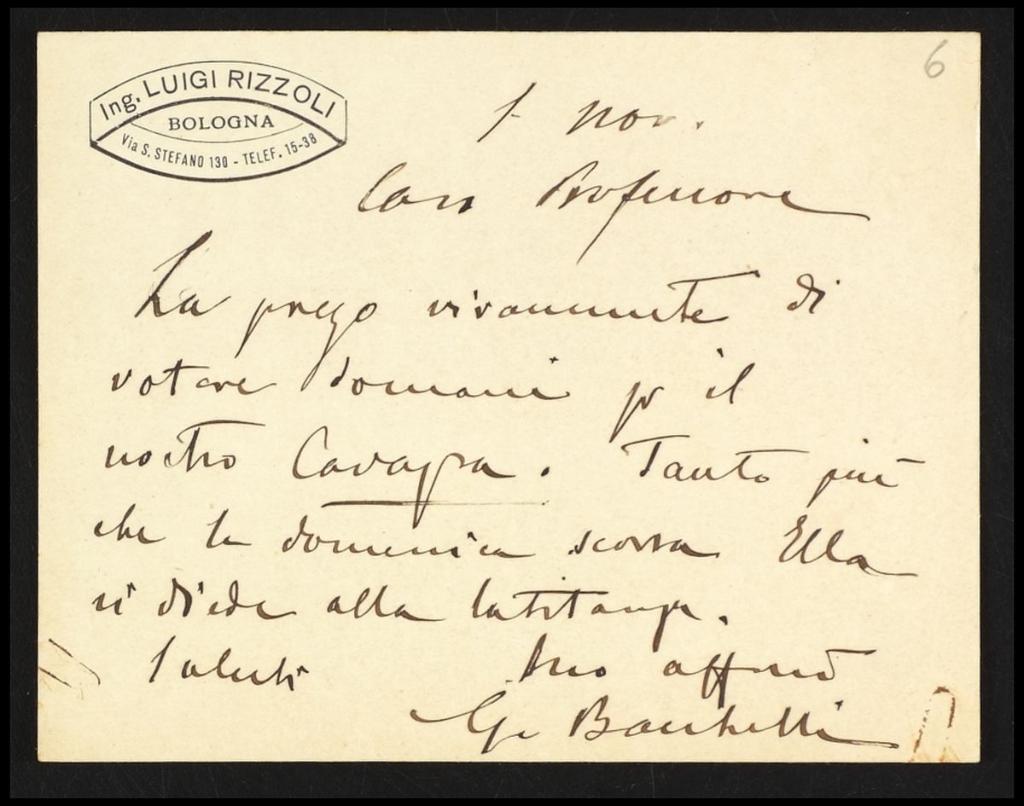 6
Ing. LUIGI RIZZOLI
BOLOGNA
Via S. STEFANO 130 - TELEF. 15-38
1 Nov.
Caro Professore
La prego vivamente di
votare domani pr il
nostro Cavazza. Tanto più
che la domenica scorsa Ella
si diede alla latitanza.
Saluti Suo affmo
G. Bacchelli